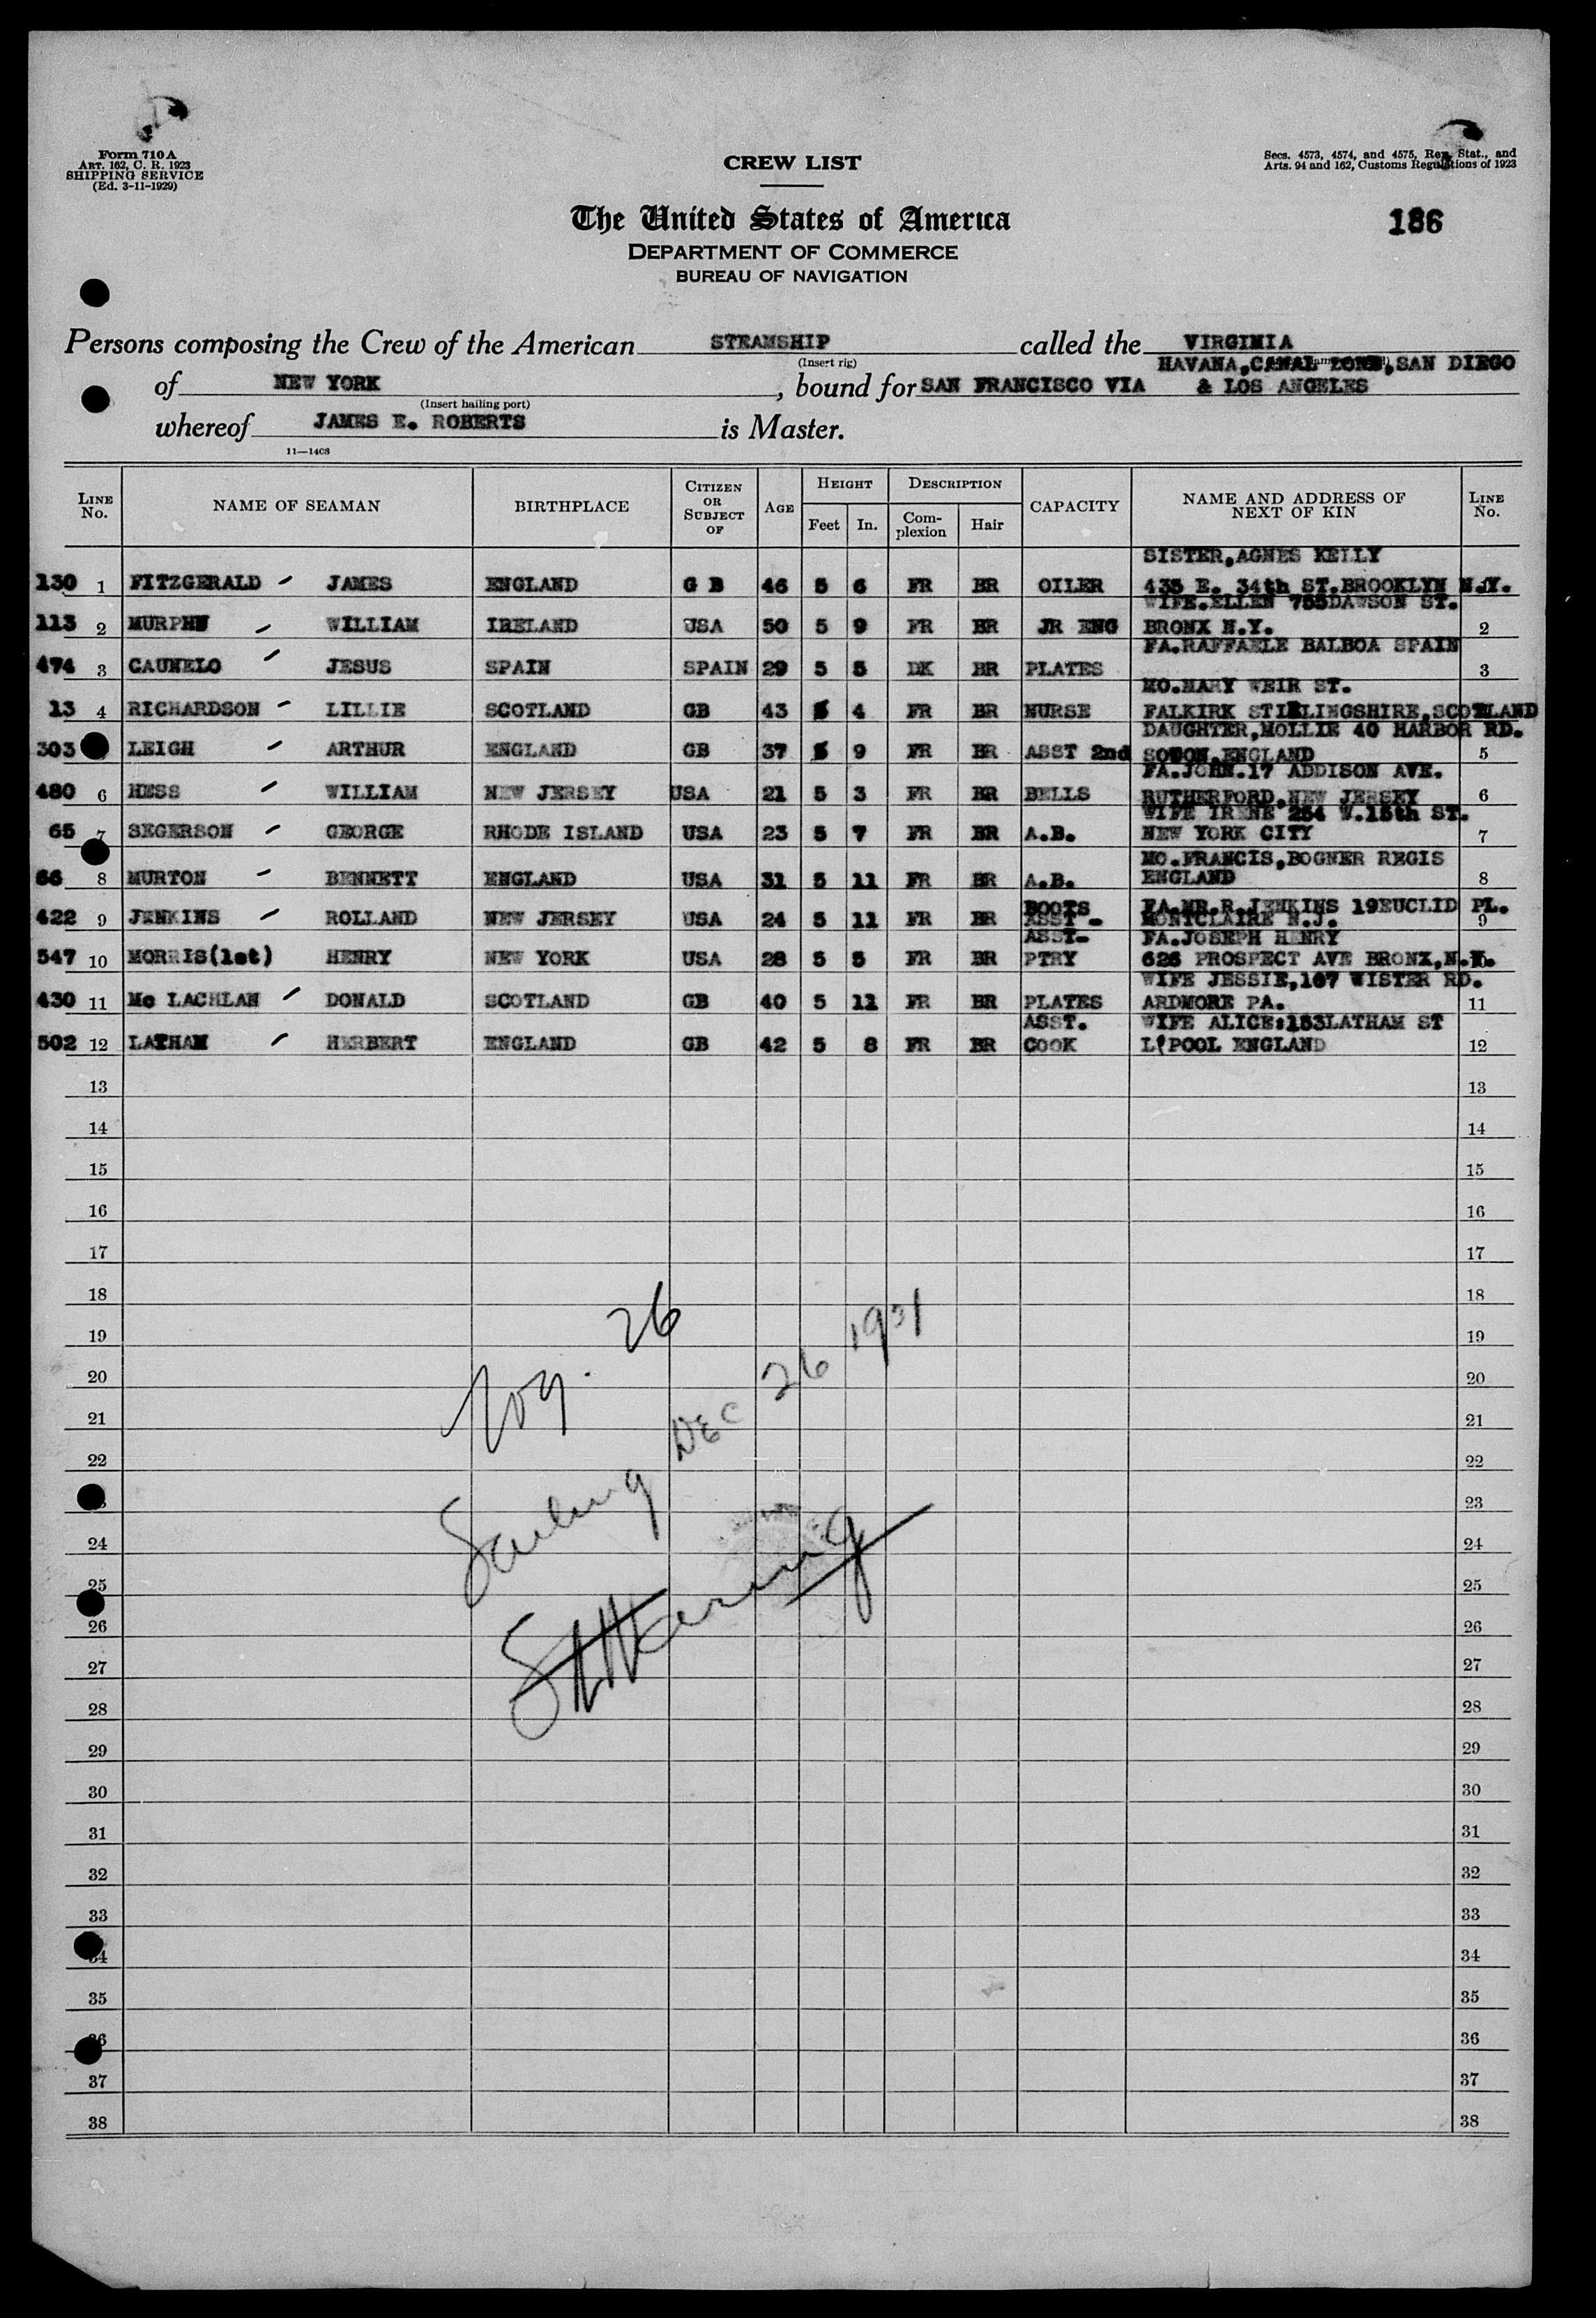 Form 710A
ART. 162, C. R. 1923
SHIPPING SERVICE
(Ed. 3-11-1929)
CREW LIST
Secs. 4573, 4574, and 4575, Rev. Stat., and
Arts. 94 and 162, Customs Regulations of 1923
The United States of America
186
DEPARTMENT OF COMMERCE
BUREAU OF NAVIGATION
Persons composing the Crew of the American STEAMSHIP called the VIRGINIA
(Insert rig)
HAVANA, CANAL ZONE, SAN DIEGO
of NEW YORK, bound for SAN FRANCISCO VIA & LOS ANGELES
(Insert hailing port)
whereof JAMES E. ROBERTS is Master.
11—1408
LINE No. NAME OF SEAMAN BIRTHPLACE CITIZEN OR SUBJECT OF AGE HEIGHT Feet In. DESCRIPTION Complexion Hair CAPACITY NAME AND ADDRESS OF NEXT OF KIN LINE No.
SISTER, AGNES KELLY
130 1 FITZGERALD - JAMES ENGLAND G B 46 5 6 FR BR OILER 435 E. 34th ST. BROOKLYN N.Y.
WIFE. ELLEN 755 DAWSON ST.
113 2 MURPHY - WILLIAM IRELAND USA 50 5 9 FR BR JR ENG BRONX N.Y. 2
FA. RAFFAELE BALBOA SPAIN
474 3 CAUNELO - JESUS SPAIN SPAIN 29 5 5 DK BR PLATES 3
MO. MARY WEIR ST.
13 4 RICHARDSON - LILLIE SCOTLAND GB 43 5 4 FR BR NURSE FALKIRK STIRLINGSHIRE, SCOTLAND
DAUGHTER, MOLLIE 40 HARBOR RD.
303 LEIGH - ARTHUR ENGLAND GB 37 5 9 FR BR ASST 2nd SOTON, ENGLAND 5
FA. JOHN. 17 ADDISON AVE.
480 6 HESS - WILLIAM NEW JERSEY USA 21 5 3 FR BR BELLS RUTHERFORD, NEW JERSEY 6
WIFE IRENE 254 W. 15th ST.
65 7 SEGERSON - GEORGE RHODE ISLAND USA 23 5 7 FR BR A.B. NEW YORK CITY 7
MO. FRANCIS, BOGNER REGIS
66 8 MURTON - BENNETT ENGLAND USA 31 5 11 FR BR A.B. ENGLAND 8
BOOTS FA. MR. R. JENKINS 19 EUCLID PL.
422 9 JENKINS - ROLLAND NEW JERSEY USA 24 5 11 FR BR ASST - MONTCLAIRE N.J. 9
ASST- FA. JOSEPH HENRY
547 10 MORRIS(1st) HENRY NEW YORK USA 28 5 5 FR BR PTRY 626 PROSPECT AVE BRONX, N.Y.
WIFE JESSIE, 107 WISTER RD.
430 11 Mc LACHLAN - DONALD SCOTLAND GB 40 5 11 FR BR PLATES ARDMORE PA. 11
ASST. WIFE ALICE: 153 LATHAM ST
502 12 LATHAM - HERBERT ENGLAND GB 42 5 8 FR BR COOK L'POOL ENGLAND 12
13 13
14 14
15 15
16 16
17 17
18 18
19 19
20 20
21 21
22 22
23
24 24
25 25
26 26
27 27
28 28
29 29
30 30
31 31
32 32
33 33
34 34
35 35
36 36
37 37
38 38
Voy. 26
Sailing DEC 26 1931